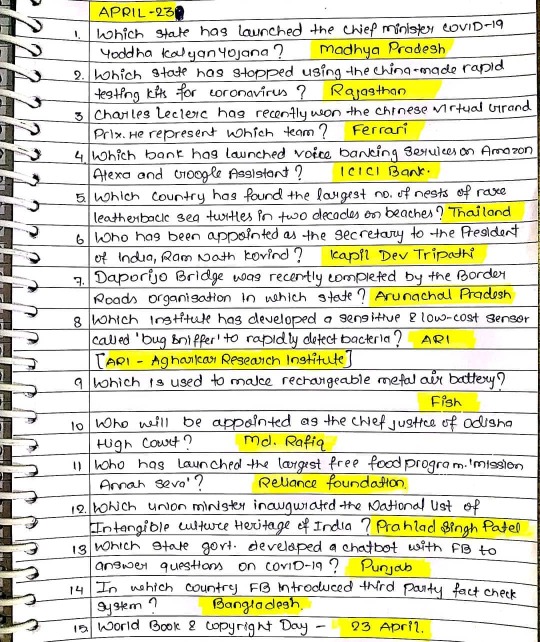 APRIL-23
1. Which state has launched the chief minister COVID-19
Yoddha Kalyan Yojana? Madhya Pradesh
2. Which state has stopped using the china-made rapid
testing kits for coronavirus? Rajasthan
3 Charles Leclerc has recently won the chinese virtual Grand
Prix. He represent which team? Ferrari
4. Which bank has launched voice banking services on Amazon
Alexa and Google Assistant? ICICI Bank.
5. Which country has found the largest no. of nests of rare
leatherback sea turtles in two decades on beaches? Thailand
6 Who has been appointed as the secretary to the President
of India, Ram Nath Kovind? Kapil Dev Tripathi
7. Daporijo Bridge was recently completed by the Border
Roads organisation in which state? Arunachal Pradesh
8 Which institute has developed a sensitive & low-cost sensor
called 'bug sniffer' to rapidly detect bacteria? ARI
[ARI - Agharkar Research Institute]
9 Which is used to make rechargeable metal air battery?
Fish
10 Who will be appointed as the chief justice of Odisha
High Court? Md. Rafiq
11 Who has launched the largest free food program. 'mission
Annah Seva'? Reliance foundation.
12. Which union minister inaugurated the National List of
Intangible culture Heritage of India? Prahlad Singh Patel
13 Which state govt. developed a chatbot with FB to
answer questions on COVID-19? Punjab
14 In which country FB introduced third party fact check
system? Bangladesh.
15. World Book & Copyright Day - 23 April.